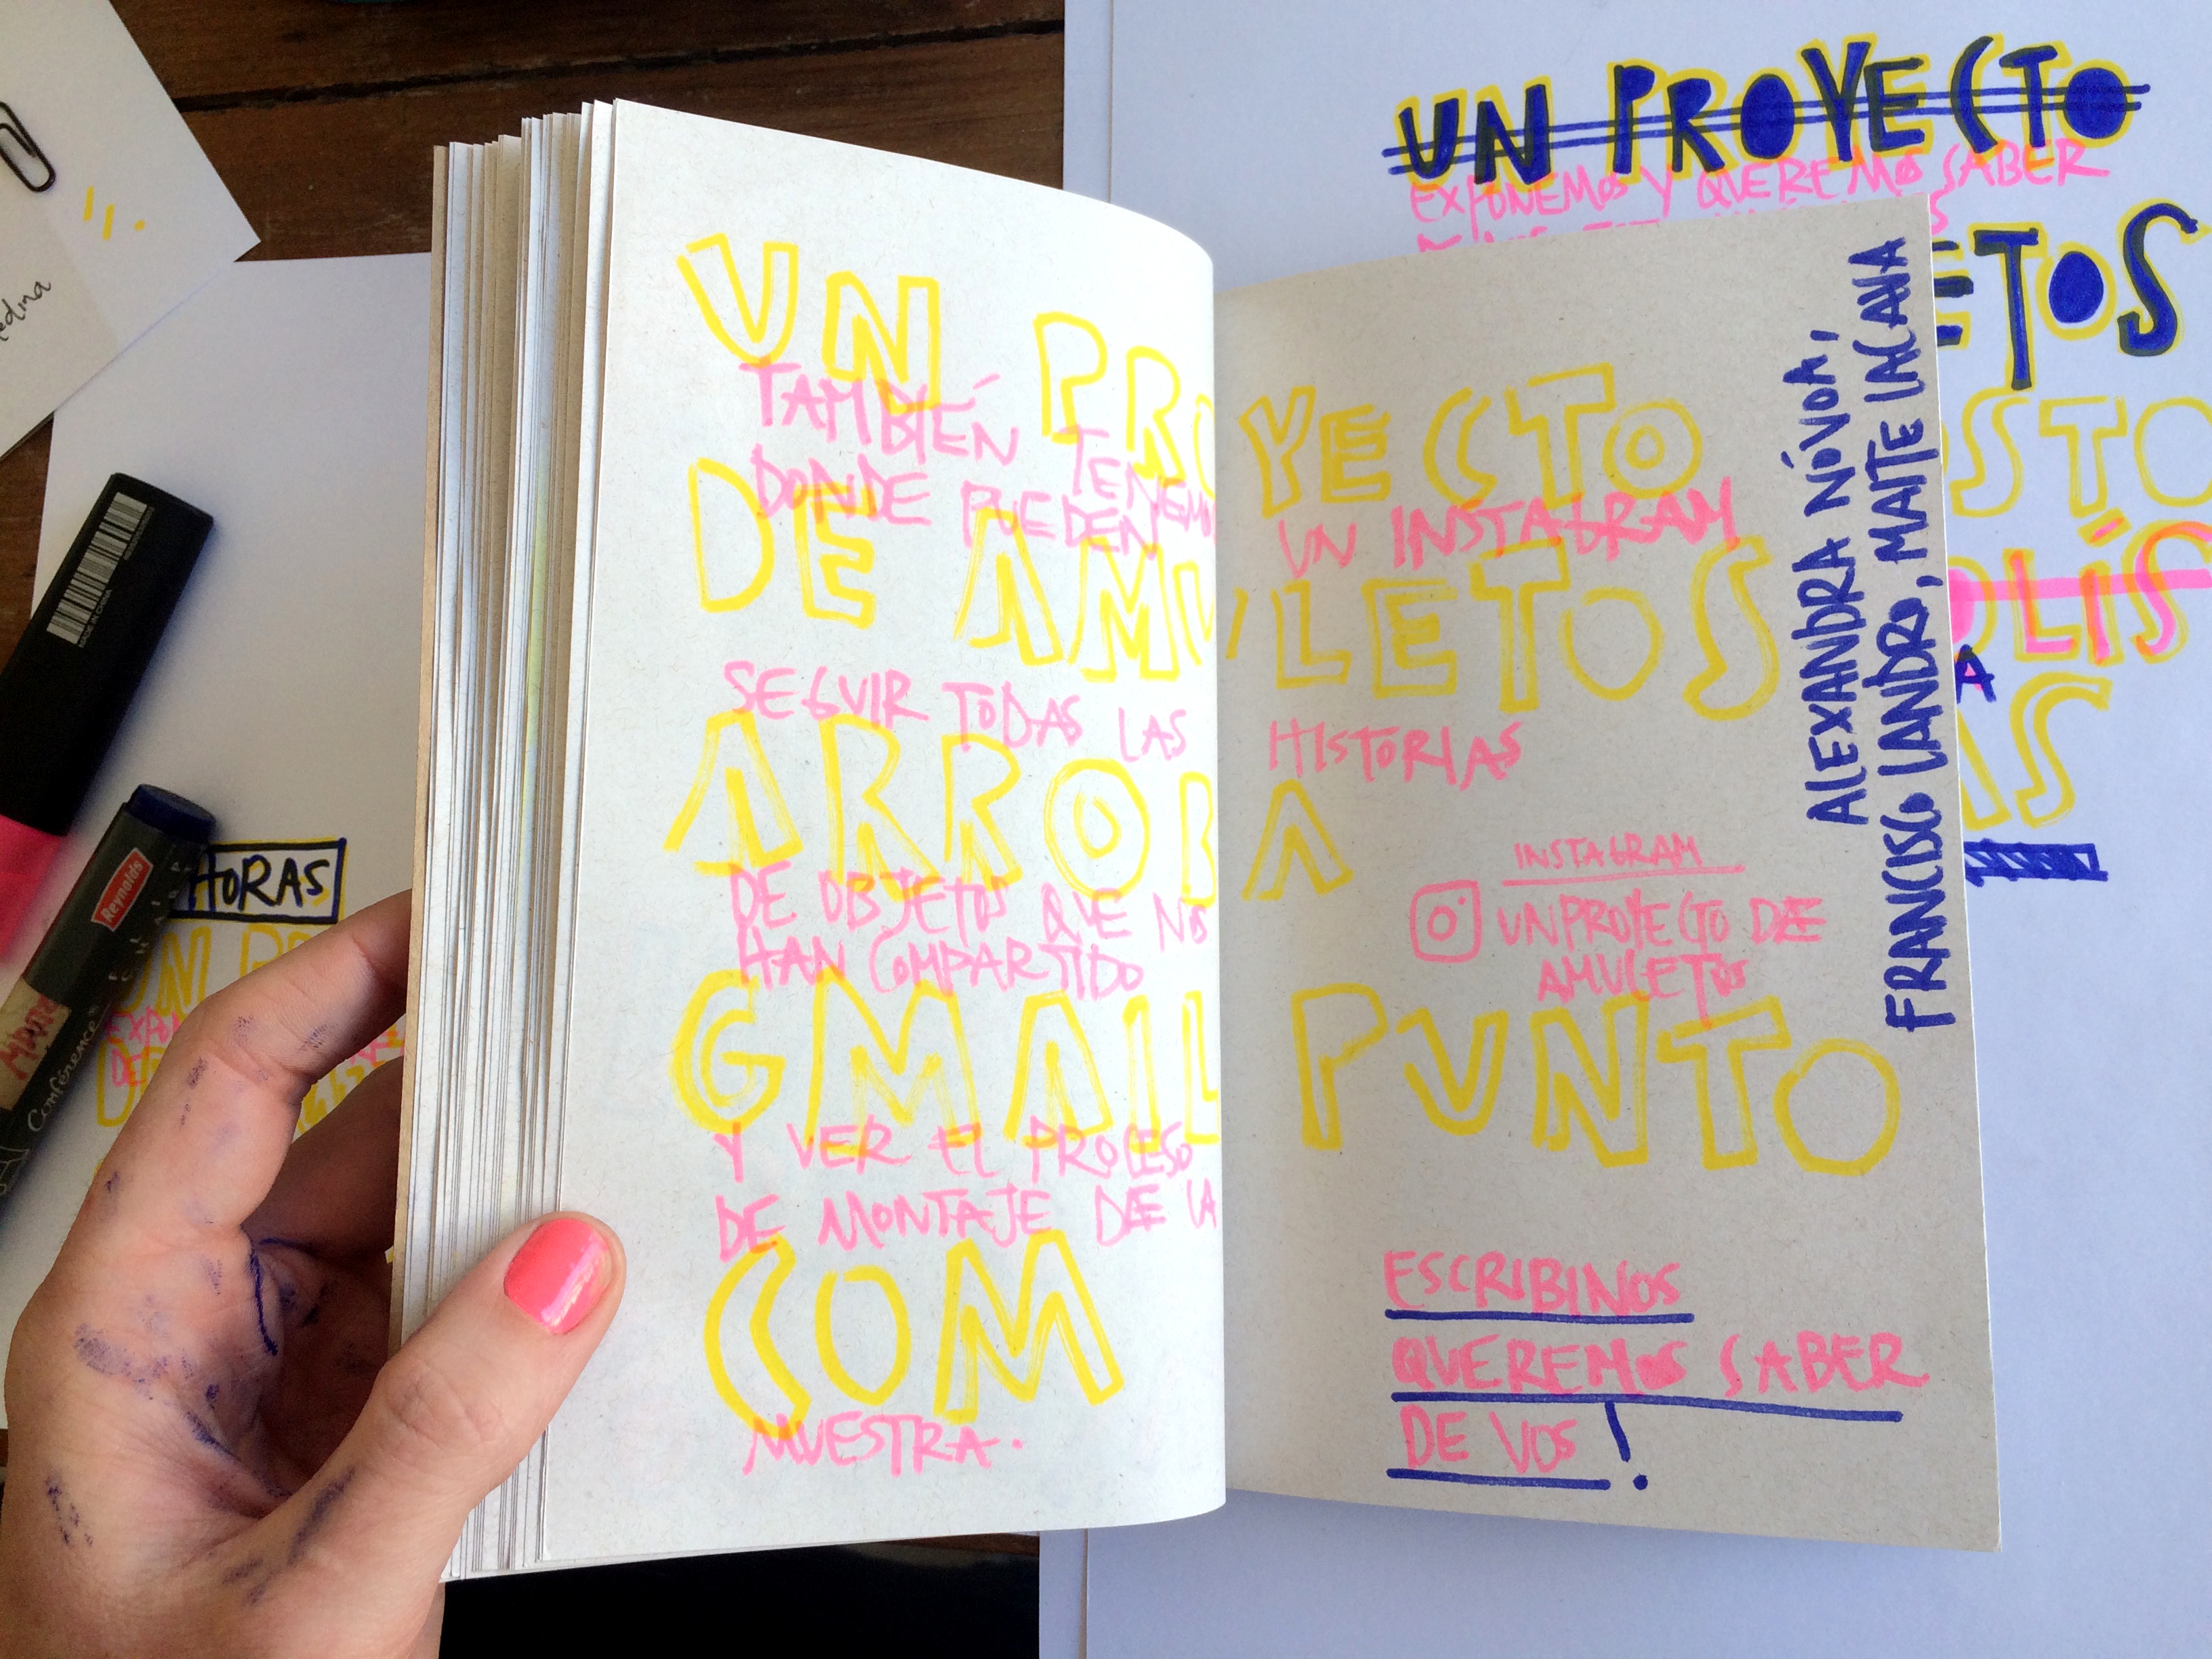 UN PROYECTO
EXPONEMOS Y QUEREMOS SABER
ETOS
OSTO
OLÍS
A
AS
edina
MADE IN CHINA
Reynolds
Conférence
HORAS
UN PROYECTO
TAMBIÉN TENEMOS UN INSTAGRAM
DONDE PUEDEN
DE AMULETOS
SEGUIR TODAS LAS HISTORIAS
ARROBA
DE OBJETOS QUE NOS
HAN COMPARTIDO
GMAIL PUNTO
Y VER EL PROCESO
DE MONTAJE DE LA
COM
MUESTRA.
INSTAGRAM
UNPROYECTO DE
AMULETOS
ESCRIBINOS
QUEREMOS SABER
DE VOS!
ALEXANDRA NÓVOA,
FRANCISCO LANDRO, MAITE LACAVA